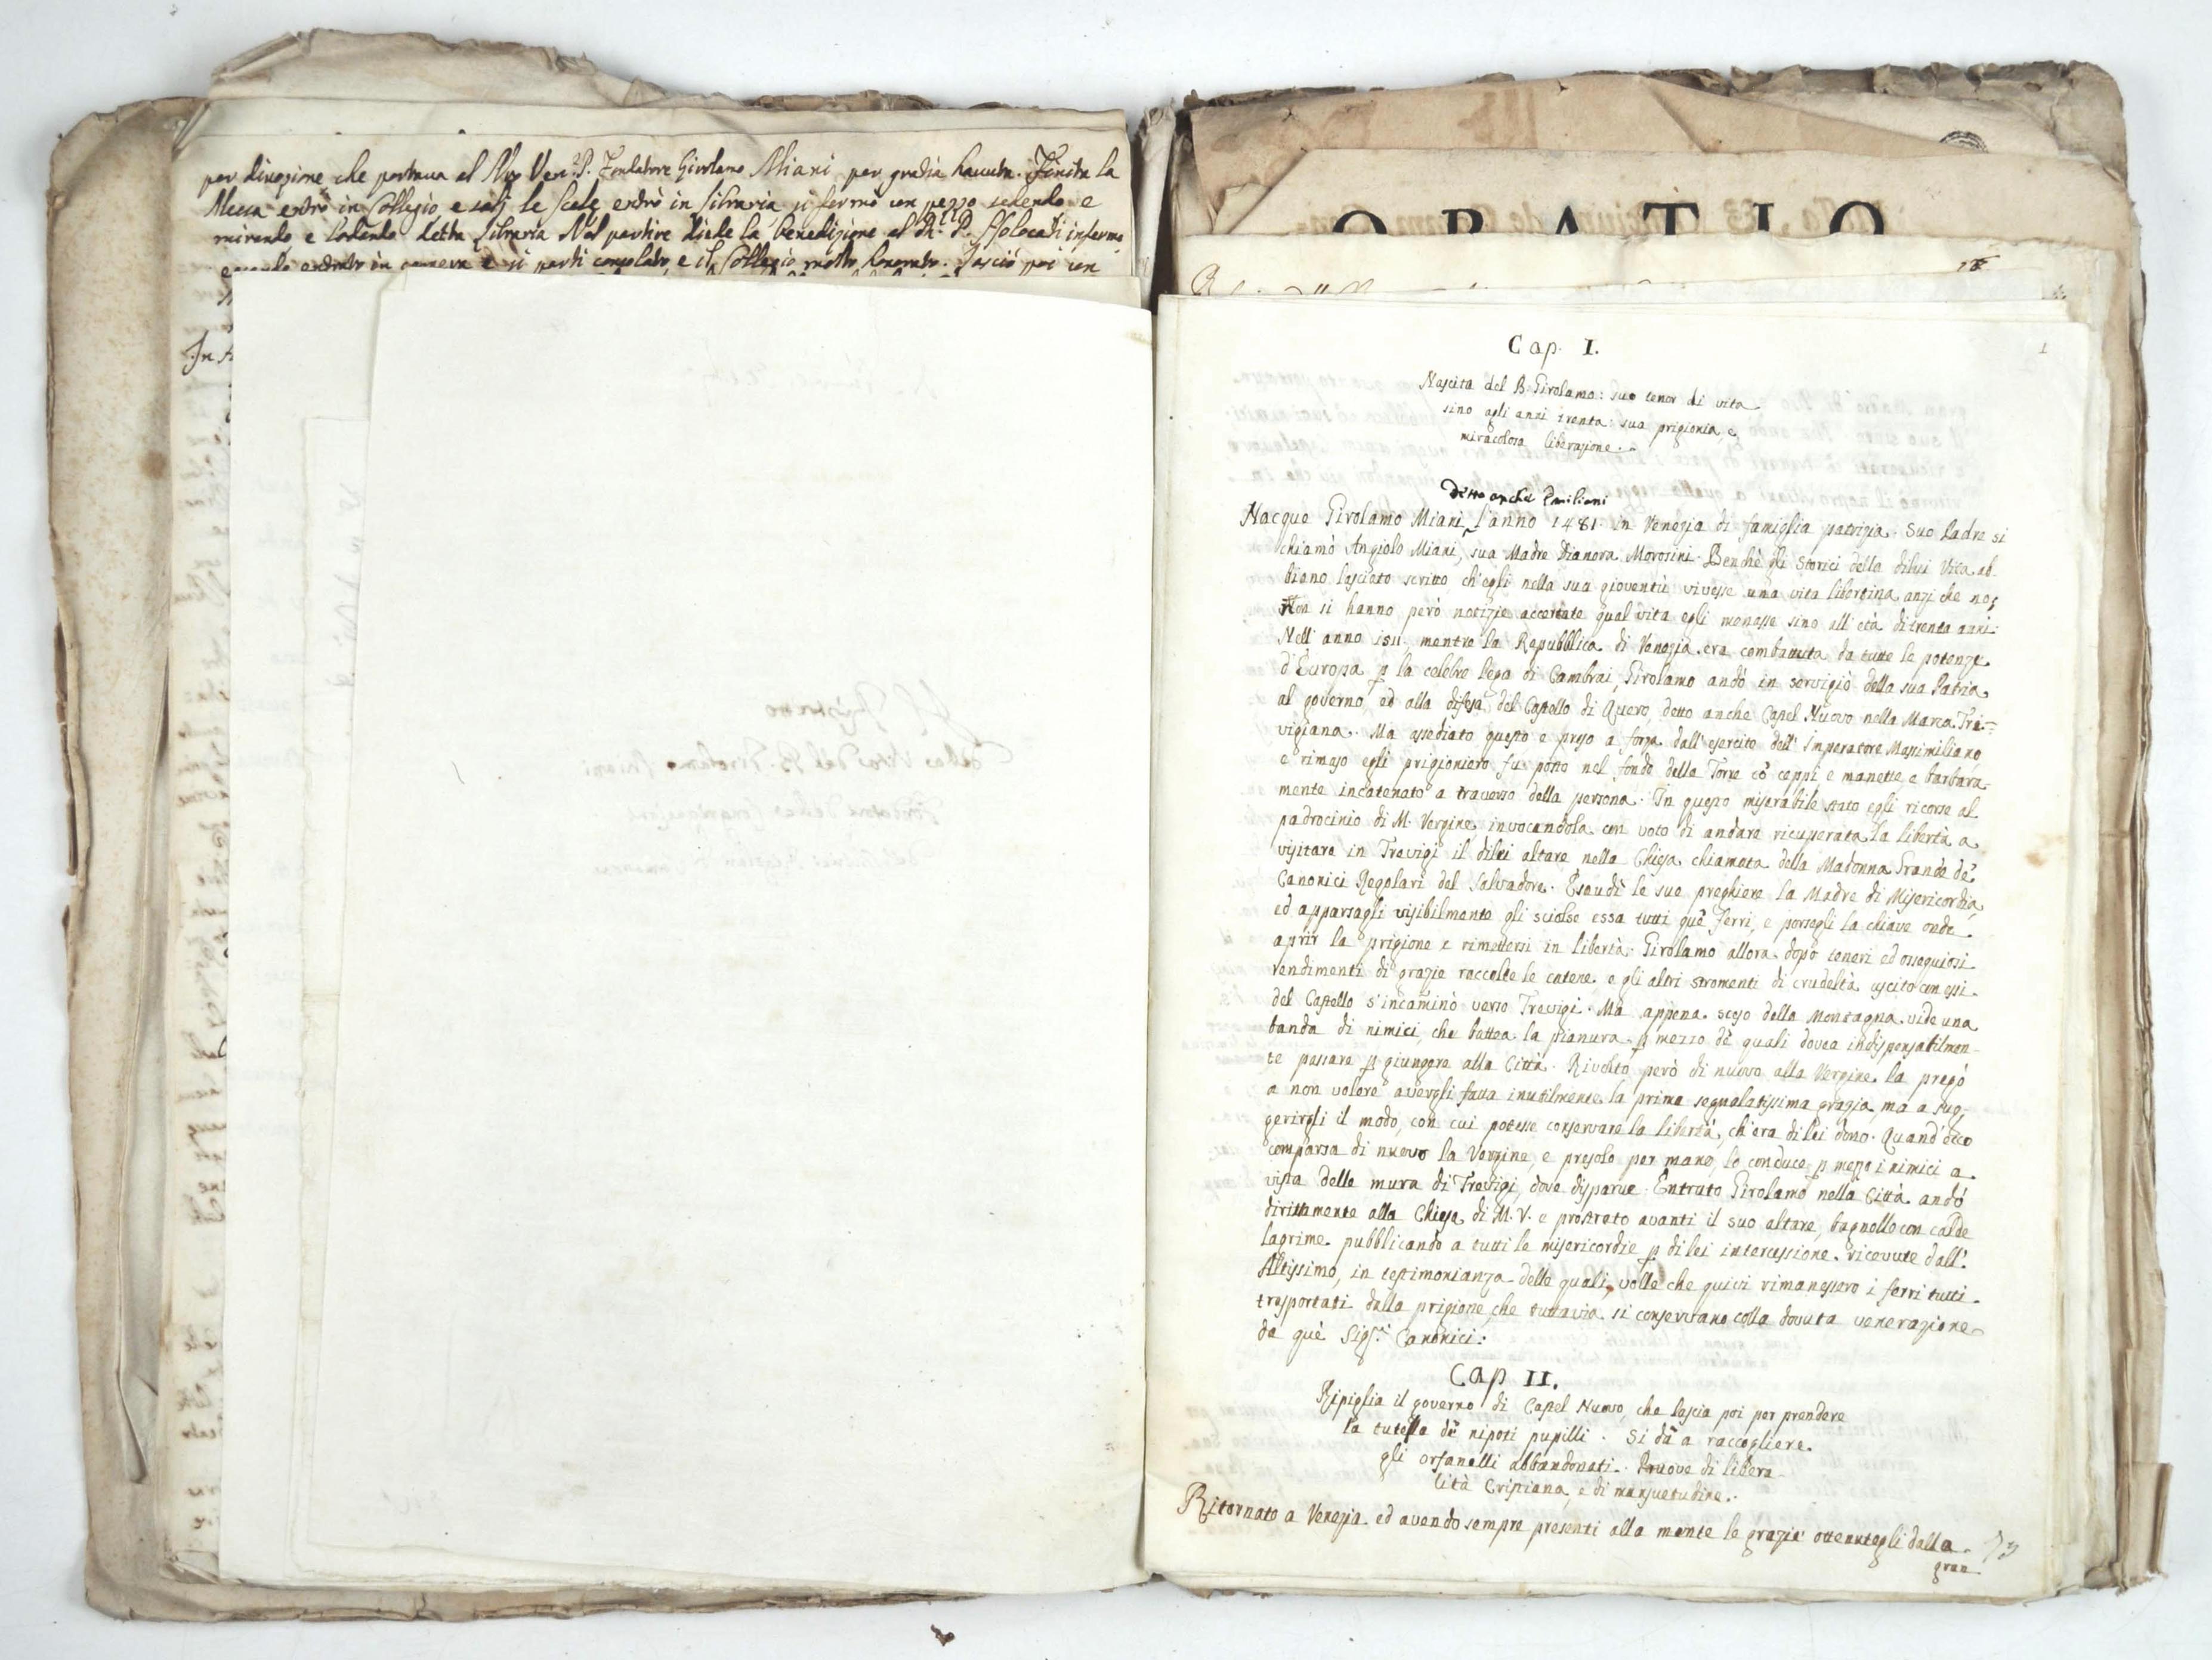 per divozione che portava al Nro Ven. P. Fondatore Girolamo Miani per gratia havuta. Finita la
Messa entrò in Collegio e salì le Scale entrò in libraria si fermò un pezzo sedendo e
mirando e lodando detta Libraria Nel partire diede la benedizione al infermo
essendo entrato in camera e si partì consolato, e il Collegio molto honorato. Lasciò poi un
In
ORATIO
Cap. I.
1
Nascita del B. Girolamo: suo tenor di vita
sino agli anni trenta: sua prigionia, e
miracolosa liberazione.
Detto anche Emiliani
Nacque Girolamo Miani l'anno 1481. in Venezia di famiglia patrizia. Suo Padre si
chiamò Angiolo Miani, sua Madre Dianora Morosini. Benchè gli Storici della dilui Vita ab-
biano lasciato scritto ch'egli nella sua gioventù vivesse una vita libertina anzi che no;
Non si hanno però notizie accertate qual vita egli menasse sino all'età di trenta anni.
Nell'anno 1511. mentre la Repubblica di Venezia era combattuta da tutte le potenze
d'Europa p la celebre lega di Cambrai, Girolamo andò in servigio della sua Patria
al governo, ed alla difesa del Castello di Quero, detto anche Castel Nuovo nella Marca Tri-
vigiana. Ma assediato questo e preso a forza dall'esercito dell'Imperatore Massimiliano
e rimaso egli prigioniero fu posto nel fondo della Torre cò ceppi e manette e barbara-
mente incatenato a traverso della persona. In questo miserabile stato egli ricorse al
padrocinio di M. Vergine, invocandola con voto di andare ricuperata la libertà a
visitare in Trevigi il dilei altare nella Chiesa chiamata della Madonna Grande dè
Canonici Regolari del Salvadore. Esaudì le sue preghiere la Madre di Misericordia,
ed apparsagli visibilmente gli sciolse essa tutti què ferri, e porsegli la chiave onde
aprir la prigione e rimettersi in libertà. Girolamo allora dopo teneri ed ossequiosi
rendimenti di grazie raccolte le catene e gli altri stromenti di crudeltà uscito con essi
del Castello s'incaminò verso Trevigi. Ma appena sceso della Montagna vide una
banda di nimici, che battea la pianura p mezzo dè quali dovea indispensabilmen-
te passare p giungere alla Città. Rivolto però di nuovo alla Vergine la pregò
a non volere avergli fatta inutilmente la prima segnalatissima grazia, ma a sug-
gerirgli il modo, con cui potesse conservare la libertà, ch'era di lei dono. Quand'ecco
comparsa di nuovo la Vergine, e presolo per mano, lo conduce p mezzo i nimici a
vista delle mura di Trevigi, dove disparve. Entrato Girolamo nella Città andò
dirittamente alla Chiesa di M. V. e prostrato avanti il suo altare, bagnollo con calde
lagrime pubblicando a tutti le misericordie p di lei intercessione ricevute dall'
Altissimo, in testimonianza delle quali, volle che quivi rimanessero i ferri tutti
trasportati dalla prigione, che tuttavia si conservano colla dovuta venerazione
da què Sigri Canonici.
Cap II.
Ripiglia il governo di Castel Nuovo, che lascia poi per prendere
la tutella dè nipoti pupilli. Si dà a raccogliere
gli orfanelli abbandonati. Pruove di libera-
lità Cristiana, e di mansuetudine.
Ritornato a Venezia ed avendo sempre presenti alla mente le grazie ottenutegli dalla
gran